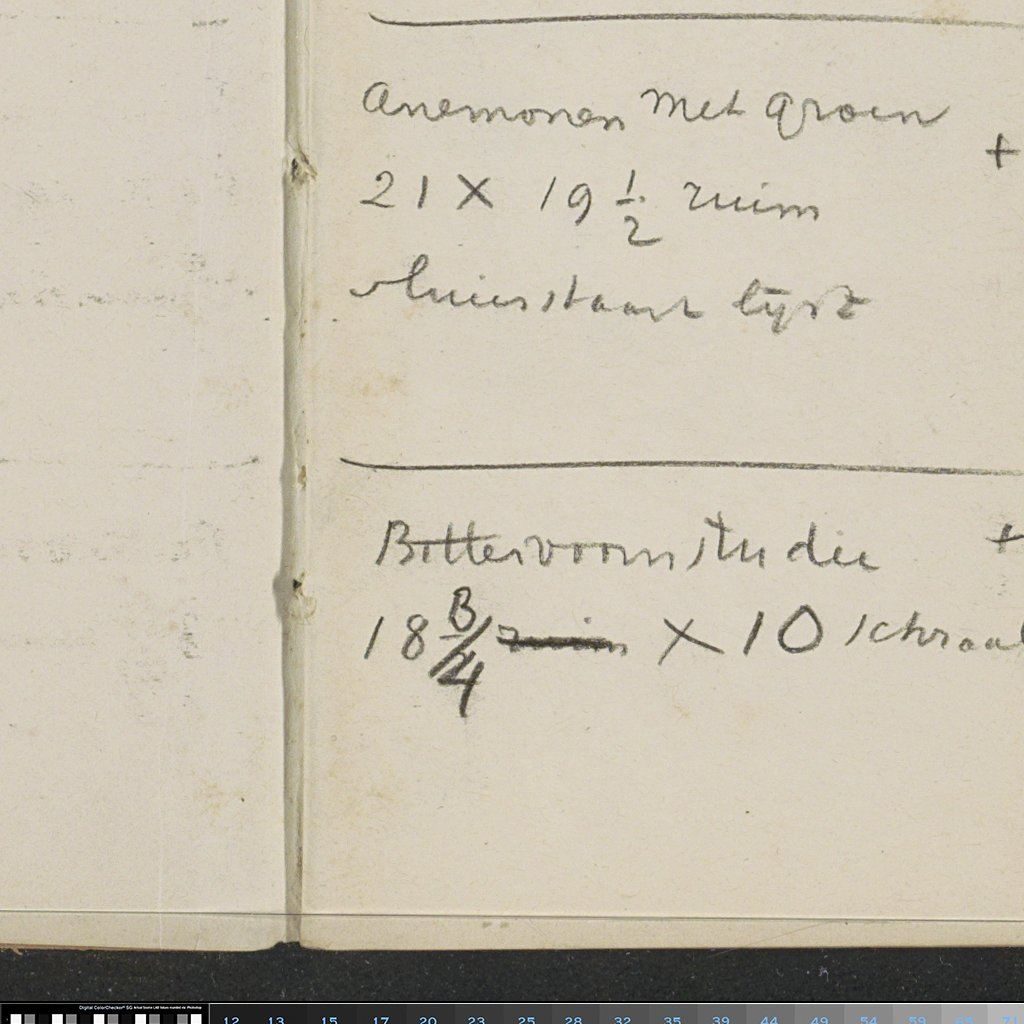 Anemonen met groen
+
21 X 19 1/2 ruim
vluierstaart lijst
Bittervoorn studie +
18 3/4 ruim X 10 schraal
12 13 15 17 20 23 25 28 32 35 39 44 49 54 59 65 71